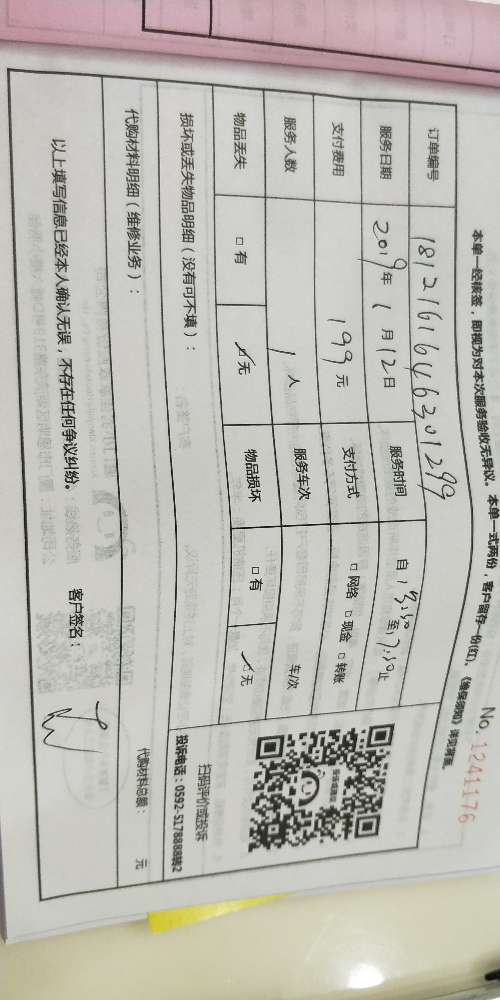 No. 1241176
本单一经核签，即视为对本次服务验收无异议。本单一式两份，客户留存一份(红)。《维保须知》详见背面。
订单编号 181216164646301299
服务日期 2019年1月12日 服务时间 自13:30至17:30止
支付费用 199元 支付方式 □网络 □现金 □转账
服务人数 1人 服务车次 车/次
物品丢失 □有 ✓无 物品损坏 □有 ✓无
损坏或丢失物品明细（没有可不填）：
扫码评价或投诉
投诉电话：0592-5178888转2
代购材料明细（维修业务）：
代购材料总额： 元
以上填写信息已经本人确认无误，不存在任何争议纠纷。 客户签名：